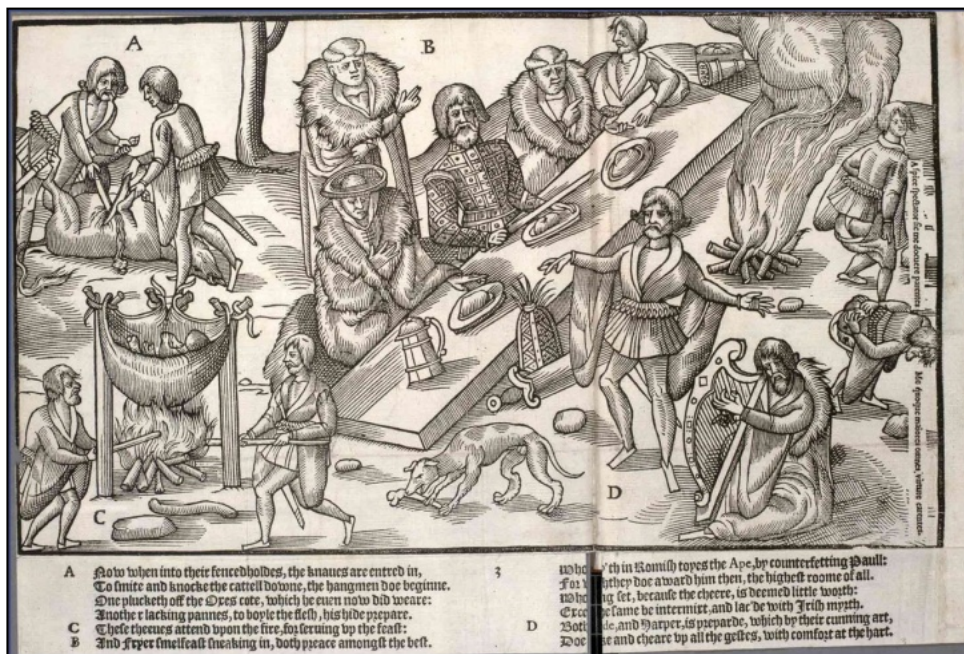 A
B
C
D
A Now when into their fencedholdes, the knaues are entred in,
To smite and knocke the cattell downe, the hangmen doe beginne.
One plucketh off the Oxes cote, which he euen now did weare:
Another lacking pannes, to boyle the flesh, his hide prepare.
C These theeues attend vpon the fire, for seruing vp the feast:
B And Fryer smelfeast sneaking in, doth preace amongst the best.
3
in Romish toyes the Ape, by counterfetting Paull:
For they doe award him then, the highest roome of all.
set, because the cheere, is deemed little worth:
same be intermixt, and lac'de with Irish myrth.
D and Harper, is preparde, which by their cunning art,
and cheare vp all the gestes, with comfort at the hart.